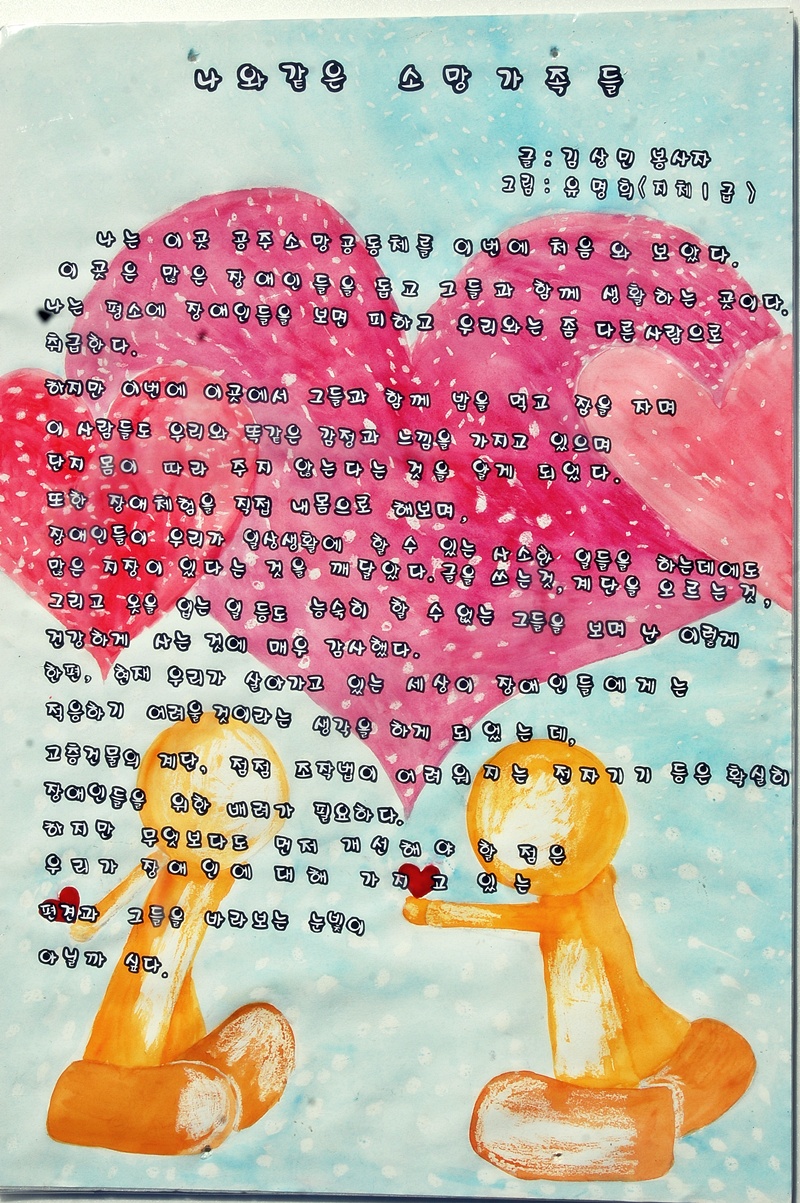 나와같은 소망가족들
글:김상민 봉사자
그림:유명희(지체1급)
나는 이곳 공주소망공동체를 이번에 처음 와 보았다.
이 곳은 많은 장애인들을 돕고 그들과 함께 생활하는 곳이다.
나는 평소에 장애인들을 보면 피하고 우리와는 좀 다른사람으로
취급한다.
하지만 이번에 이곳에서 그들과 함께 밥을 먹고 잠을 자며
이 사람들도 우리와 똑같은 감정과 느낌을 가지고 있으며
단지 몸이 따라 주지 않는다는 것을 알게 되었다.
또한 장애체험을 직접 내몸으로 해보며,
장애인들이 우리가 일상생활에 할수 있는 사소한 일들을 하는데에도
많은 지장이 있다는 것을 깨달았다.글을 쓰는것,계단을 오르는것,
그리고 옷을 입는 일 등도 능숙히 할 수 없는 그들을 보며 난 이렇게
건강하게 사는 것에 매우 감사했다.
한편, 현재 우리가 살아가고 있는 세상이 장애인들에게는
적응하기 어려울것이라는 생각을 하게 되었는데,
고층건물의 계단, 접접 조작법이 어려워지는 전자기기 등은 확실히
장애인들을 위한 배려가 필요하다.
하지만 무엇보다도 먼저 개선해야 할 점은
우리가 장애인에 대해 가지고 있는
편견과 그들을 바라보는 눈빛이
아닐까 싶다.